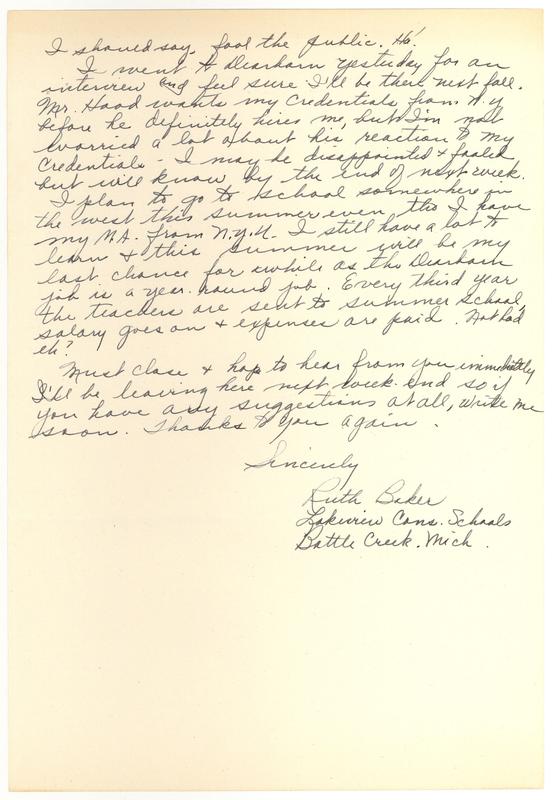 I should say, fool the public. Ho!
I went to Dearborn yesterday for an
interview and feel sure I'll be there next fall.
Mr. Hood wants my credentials from N.Y
before he definitely hires me, but I'm not
worried a lot about his reaction to my
Credentials - I may be disappointed & fooled
but will know by the end of next week.
I plan to go to school somewhere in
the west this summer even tho I have
my M.A. from N.Y.U. I still have a lot to
learn & this summer will be my
last chance for awhile as the Dearborn
job is a year-round job. Every third year
the teachers are sent to summer school,
salary goes on & expenses are paid. Not bad
eh?
Must close & hope to hear from you immediately
I'll be leaving here next week-end so if
you have any suggestions at all, write me
soon. Thanks to you again.
Sincerely
Ruth Baker
Lakeview Cons. Schools
Battle Creek. Mich.